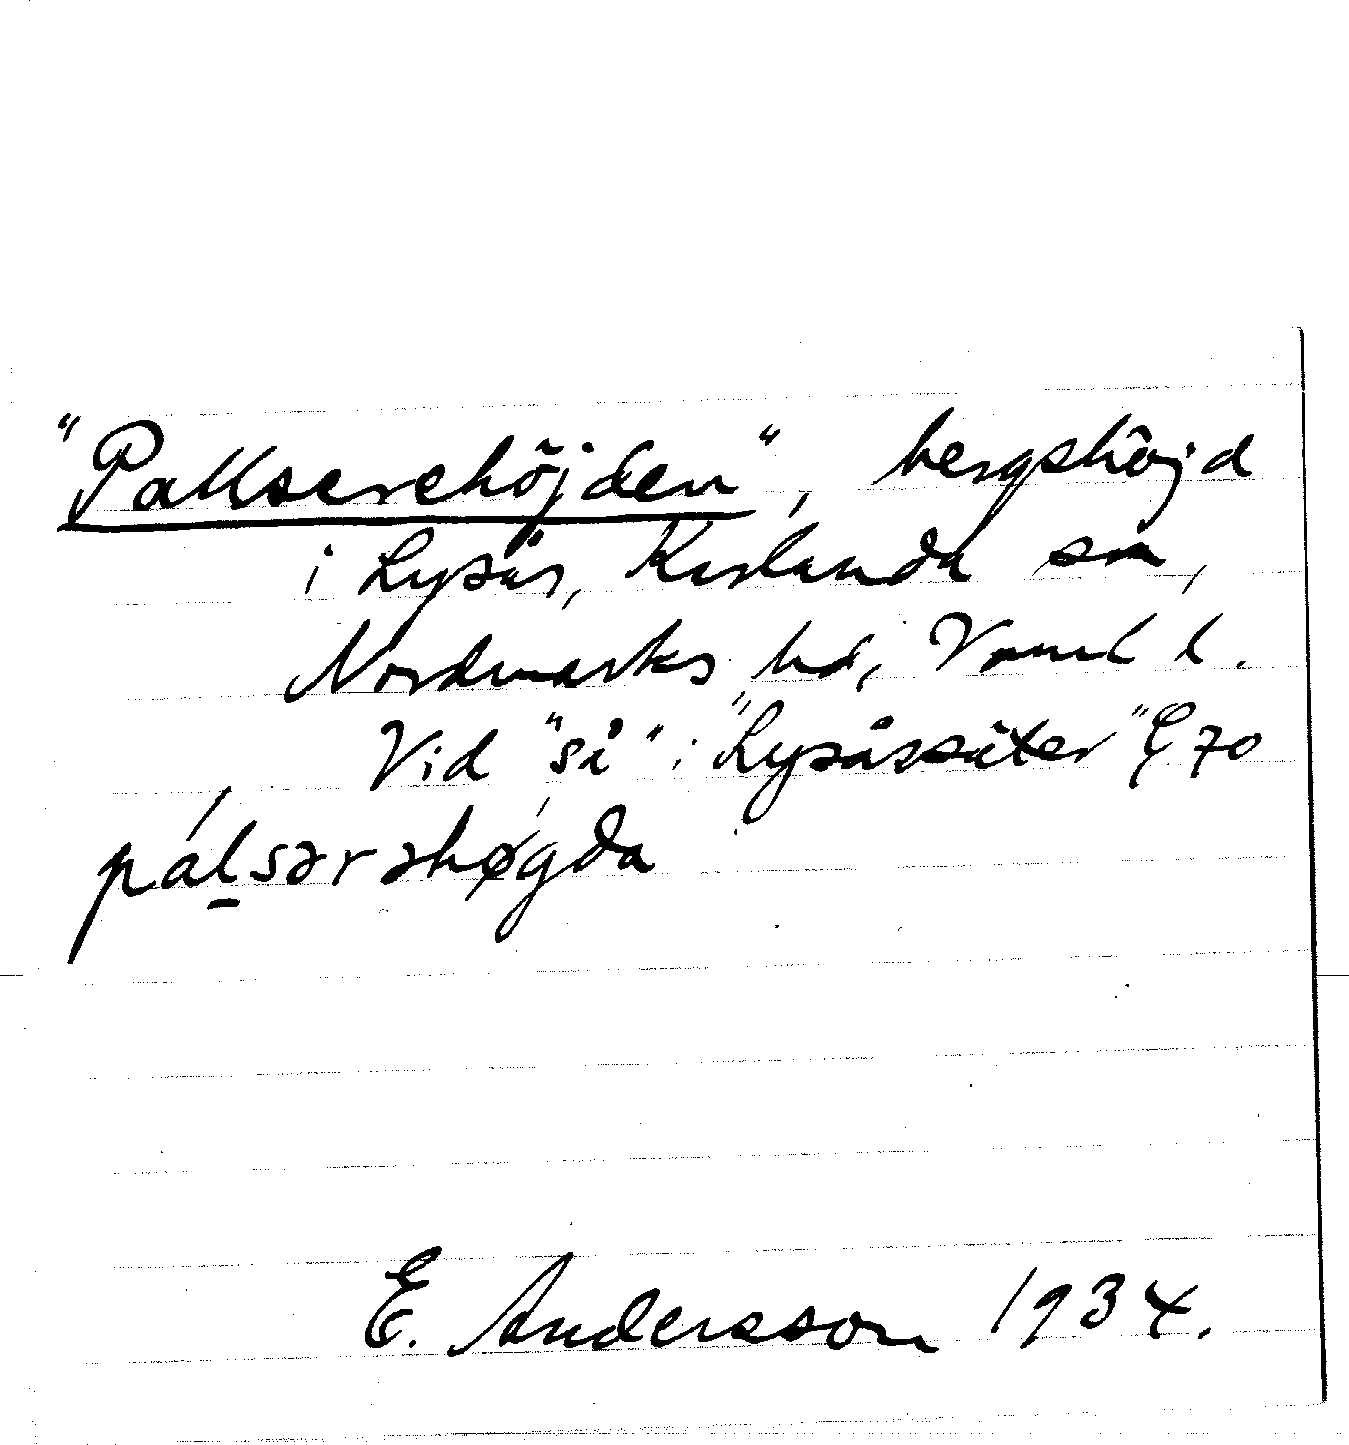 "Pallserehöjden", bergshöjd
i Lysås, Karlanda sn,
Nordmarks hd, Värml l.
Vid "så" i "Lysåssäter" E 70
pálsərəhøgda
E. Andersson 1934.